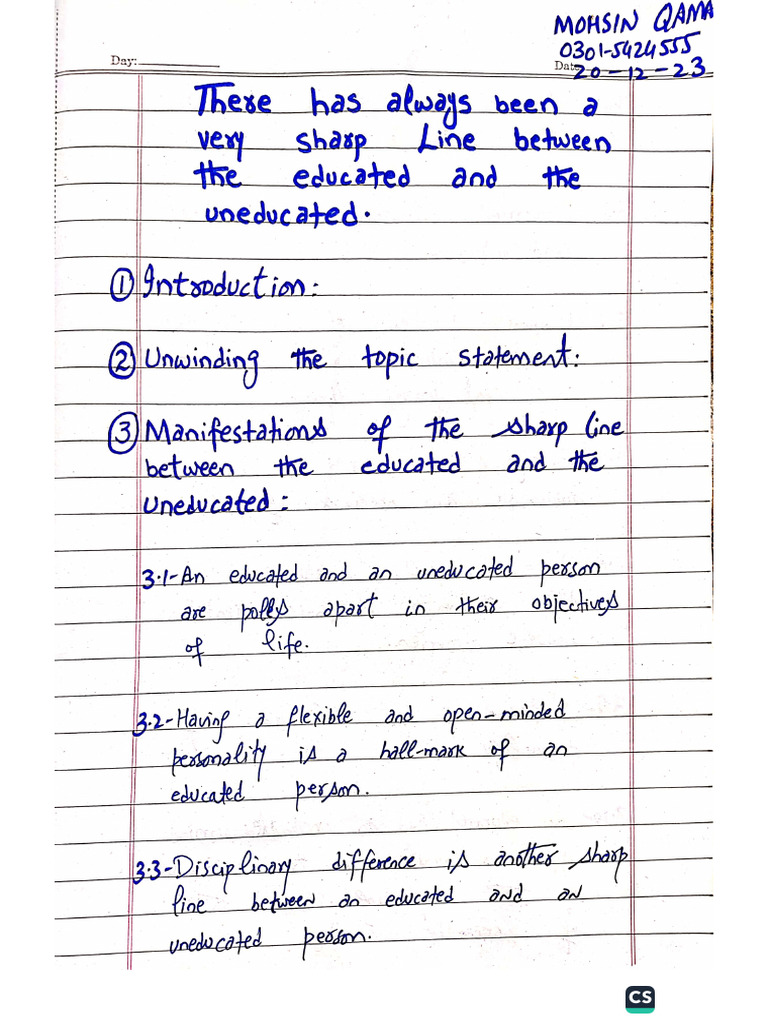 MOHSIN QAMA
0301-5424555
Day:
Date
20-12-23
There has always been a
very sharp Line between
the educated and the
uneducated.
① Introduction:
② Unwinding the topic statement:
③ Manifestations of the sharp line
between the educated and the
Uneducated:
3.1-An educated and an uneducated person
are pollys apart in their objectives
of life.
3.2-Having a flexible and open-minded
personality is a hall-mark of an
educated person.
3.3-Disciplinary difference is another sharp
line between an educated and an
uneducated person.
CS